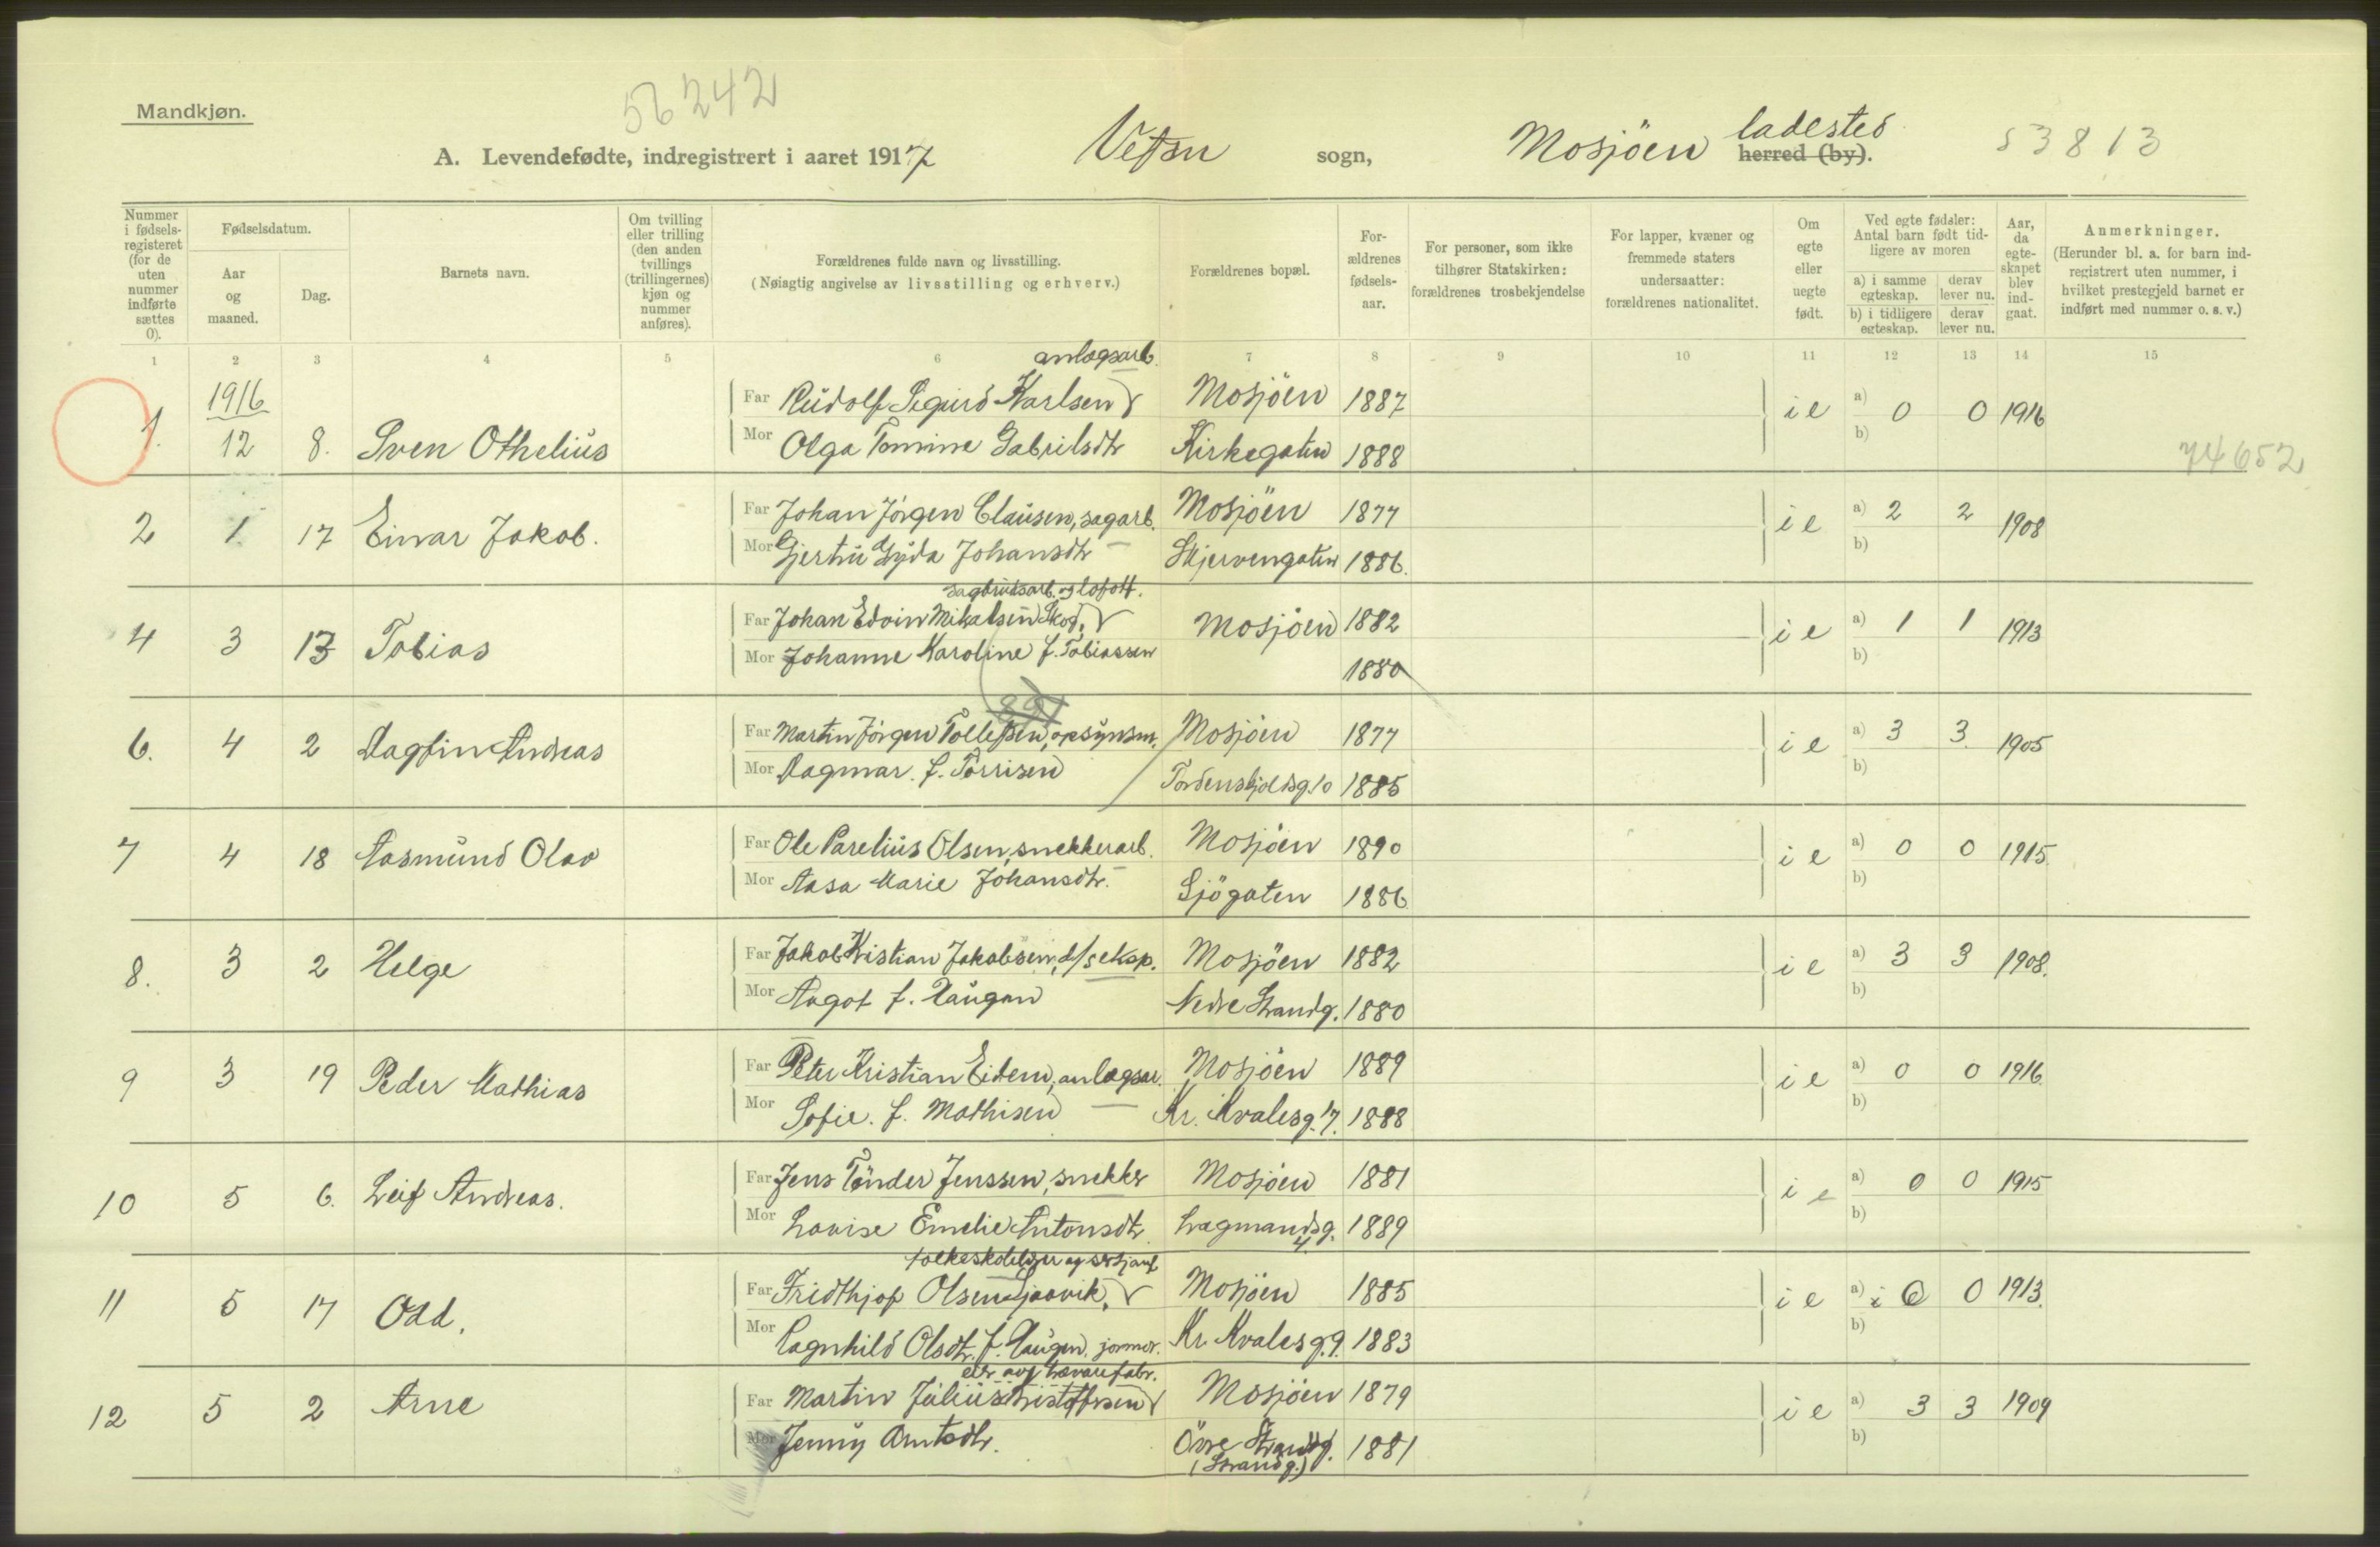 56242
Mandkjøn.
A. Levendefødte, indregistrert i aaret 1917 Vefsn sogn, Mosjöen ladested herred (by). 53813
Nummer i fødselsregisteret (for de uten nummer indførte sættes 0).
Fødselsdatum.
Aar og maaned.
Dag.
Barnets navn.
Om tvilling eller trilling (den anden tvillings (trillingernes) kjøn og nummer anføres).
Forældrenes fulde navn og livsstilling.
(Nøiagtig angivelse av livsstilling og erhverv.)
Forældrenes bopæl.
Forældrenes fødselsaar.
For personer, som ikke tilhører Statskirken: forældrenes trosbekjendelse
For lapper, kvæner og fremmede staters undersaatter: forældrenes nationalitet.
Om egte eller uegte født.
Ved egte fødsler: Antal barn født tidligere av moren
a) i samme egteskap. derav lever nu.
b) i tidligere egteskap. derav lever nu.
Aar, da egteskapet blev indgaat.
Anmerkninger.
(Herunder bl. a. for barn indregistrert uten nummer, i hvilket prestegjeld barnet er indført med nummer o. s. v.)
1 2 3 4 5 6 7 8 9 10 11 12 13 14 15
anlægsarb.
1916 Far Rudolf Sigurd Karlsen Mosjöen 1887
1. 12 8. Sven Othelius ie a) 0 0 1916
Mor Olga Tomine Gabrilsdtr Kirkegaten 1888 b)
74652
Far Johan Jörgen Clausen, sagarb. Mosjöen 1877
2 1 17 Einar Jakob. ie a) 2 2 1908
Mor Gjertru Gyda Johansdtr Skjervengaten 1886. b)
sagbruksarb. og lofott.
Far Johan Edvin Mikalsen Skog, Mosjöen 1882
4 3 13 Tobias ie a) 1 1 1913
Mor Johanne Karoline f. Tobiassen 1880 b)
Far Martin Jörgen Tollefsen, opsynsm. Mosjöen 1877
6. 4 2 Dagfin Andreas ie a) 3 3 1905
Mor Dagmar f. Torrisen Tordenskjoldsg. 10 1885 b)
Far Ole Parelius Olsen, snekkerarb. Mosjöen 1890
7 4 18 Aasmund Olav ie a) 0 0 1915
Mor Aasa Marie Johansdtr. Sjögaten 1886 b)
Far Jakob Kristian Jakobsen, d/s eksp. Mosjöen 1882
8. 3 2 Helge ie a) 3 3 1908.
Mor Aagot f. Haugan Nedre Strandg. 1880 b)
Far Peter Kristian Eidem, anlægsar. Mosjöen 1889
9 3 19 Peder Mathias ie a) 0 0 1916
Mor Sofie f. Mathisen Kr. Kvalesg. 17. 1888 b)
Far Jens Tönder Jenssen, snekker Mosjöen 1881
10 5 6. Leif Andreas. ie a) 0 0 1915
Mor Lovise Emelie Antonsdtr. Lagmandsg. 4. 1889 b)
folkeskolelærer og sersjant
Far Fridthjof Olsen Sjaavik, Mosjöen 1885
11 5 17 Odd. ie a) 0 0 1913.
Mor Ragnhild Olsdtr. f. Haugen. jormor. Kr. Kvalesg. 9. 1883 b)
Far Martin Julius Kristoffersen Mosjöen 1879
12 5 2 Arne ie a) 3 3 1909
Mor Jenny Arntsdtr. Övre Strandg. 1881 b)
(Strandg.)